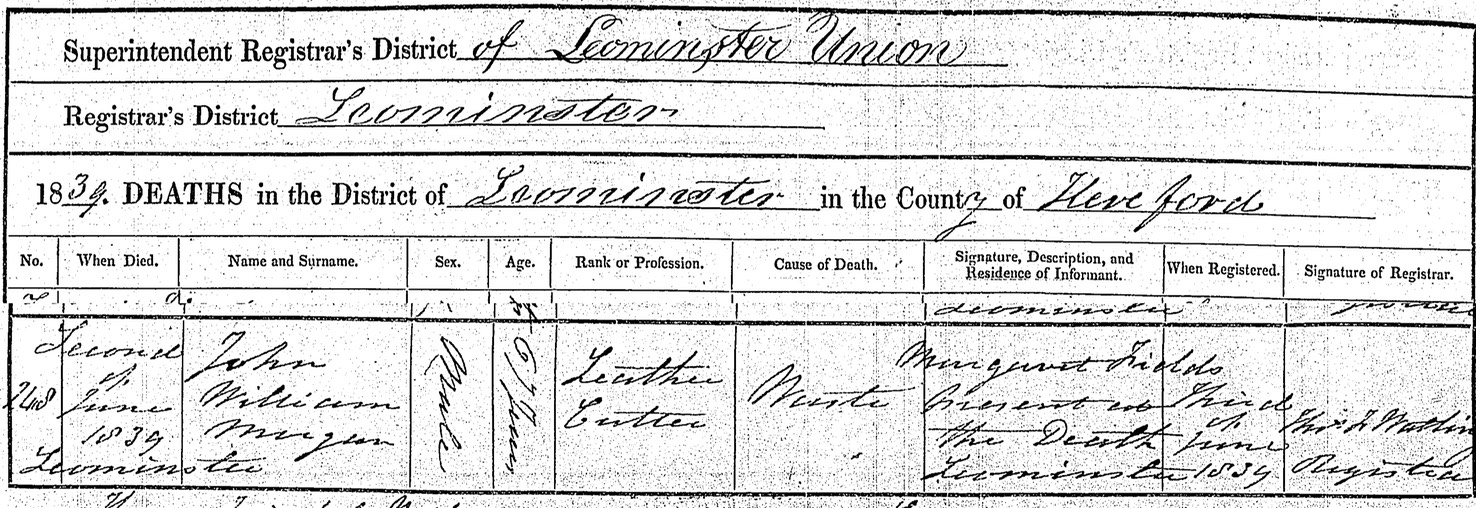 Superintendent Registrar's District of Leominster Union
Registrar's District Leominster
1839. DEATHS in the District of Leominster in the County of Hereford
No. When Died. Name and Surname. Sex. Age. Rank or Profession. Cause of Death. Signature, Description, and Residence of Informant. When Registered. Signature of Registrar.
Leominster
248
Second of June 1839 Leominster
John William Morgan
Male
Years
Leather Cutter
Waste
Margaret Fields
Present at
the Death
Leominster
Third of June 1839
Registrar